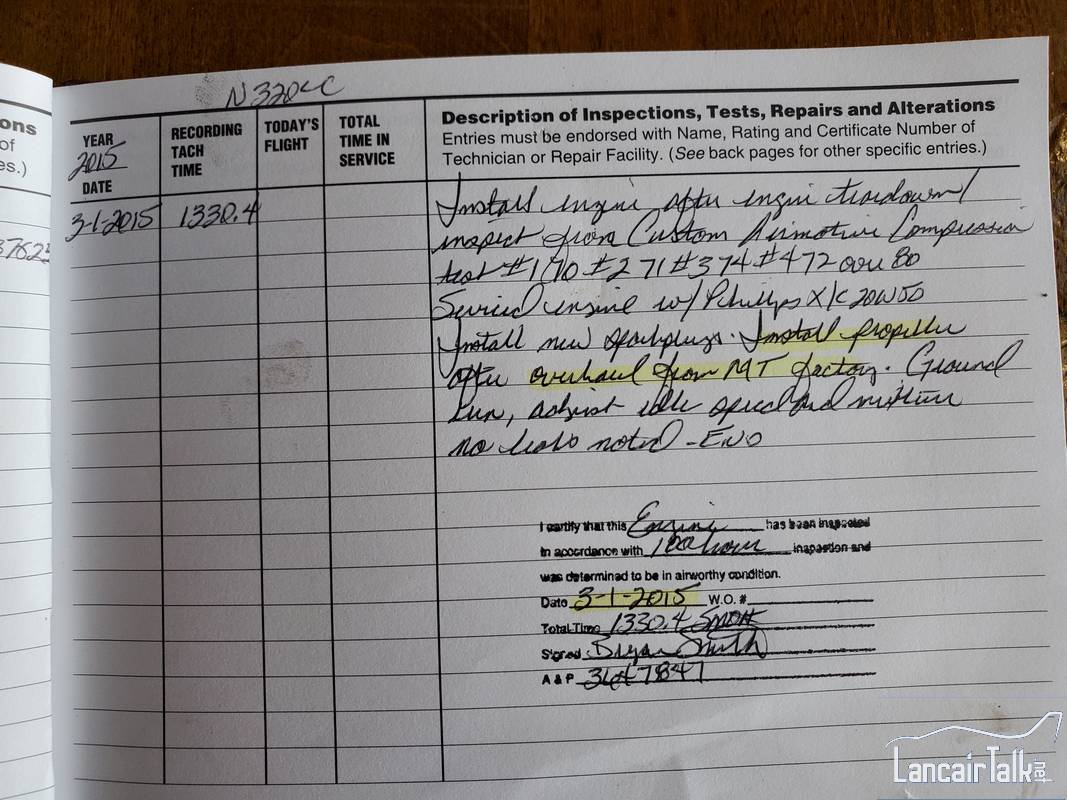 ons
of
es.)
37625
N320LC
YEAR
2015
DATE
RECORDING
TACH
TIME
TODAY'S
FLIGHT
TOTAL
TIME IN
SERVICE
Description of Inspections, Tests, Repairs and Alterations
Entries must be endorsed with Name, Rating and Certificate Number of
Technician or Repair Facility. (See back pages for other specific entries.)
3-1-2015 1330.4
Install engine after engine teardown/
inspect from Custom Airmotive Compression
test #1 70 #2 71 #3 74 #4 72 over 80
Serviced engine w/ Phillips X/C 20W50
Install new sparkplugs. Install propeller
after overhaul from MT factory. Ground
Run, adjust idle speed and mixture
no leaks noted - END
I certify that this Engine has been inspected
in accordance with 100 hour inspection and
was determined to be in airworthy condition.
Date 3-1-2015 W.O. #
Total Time 1330.4 SMOH
Signed Bryan Smith
A & P 3647847
LancairTalk.net